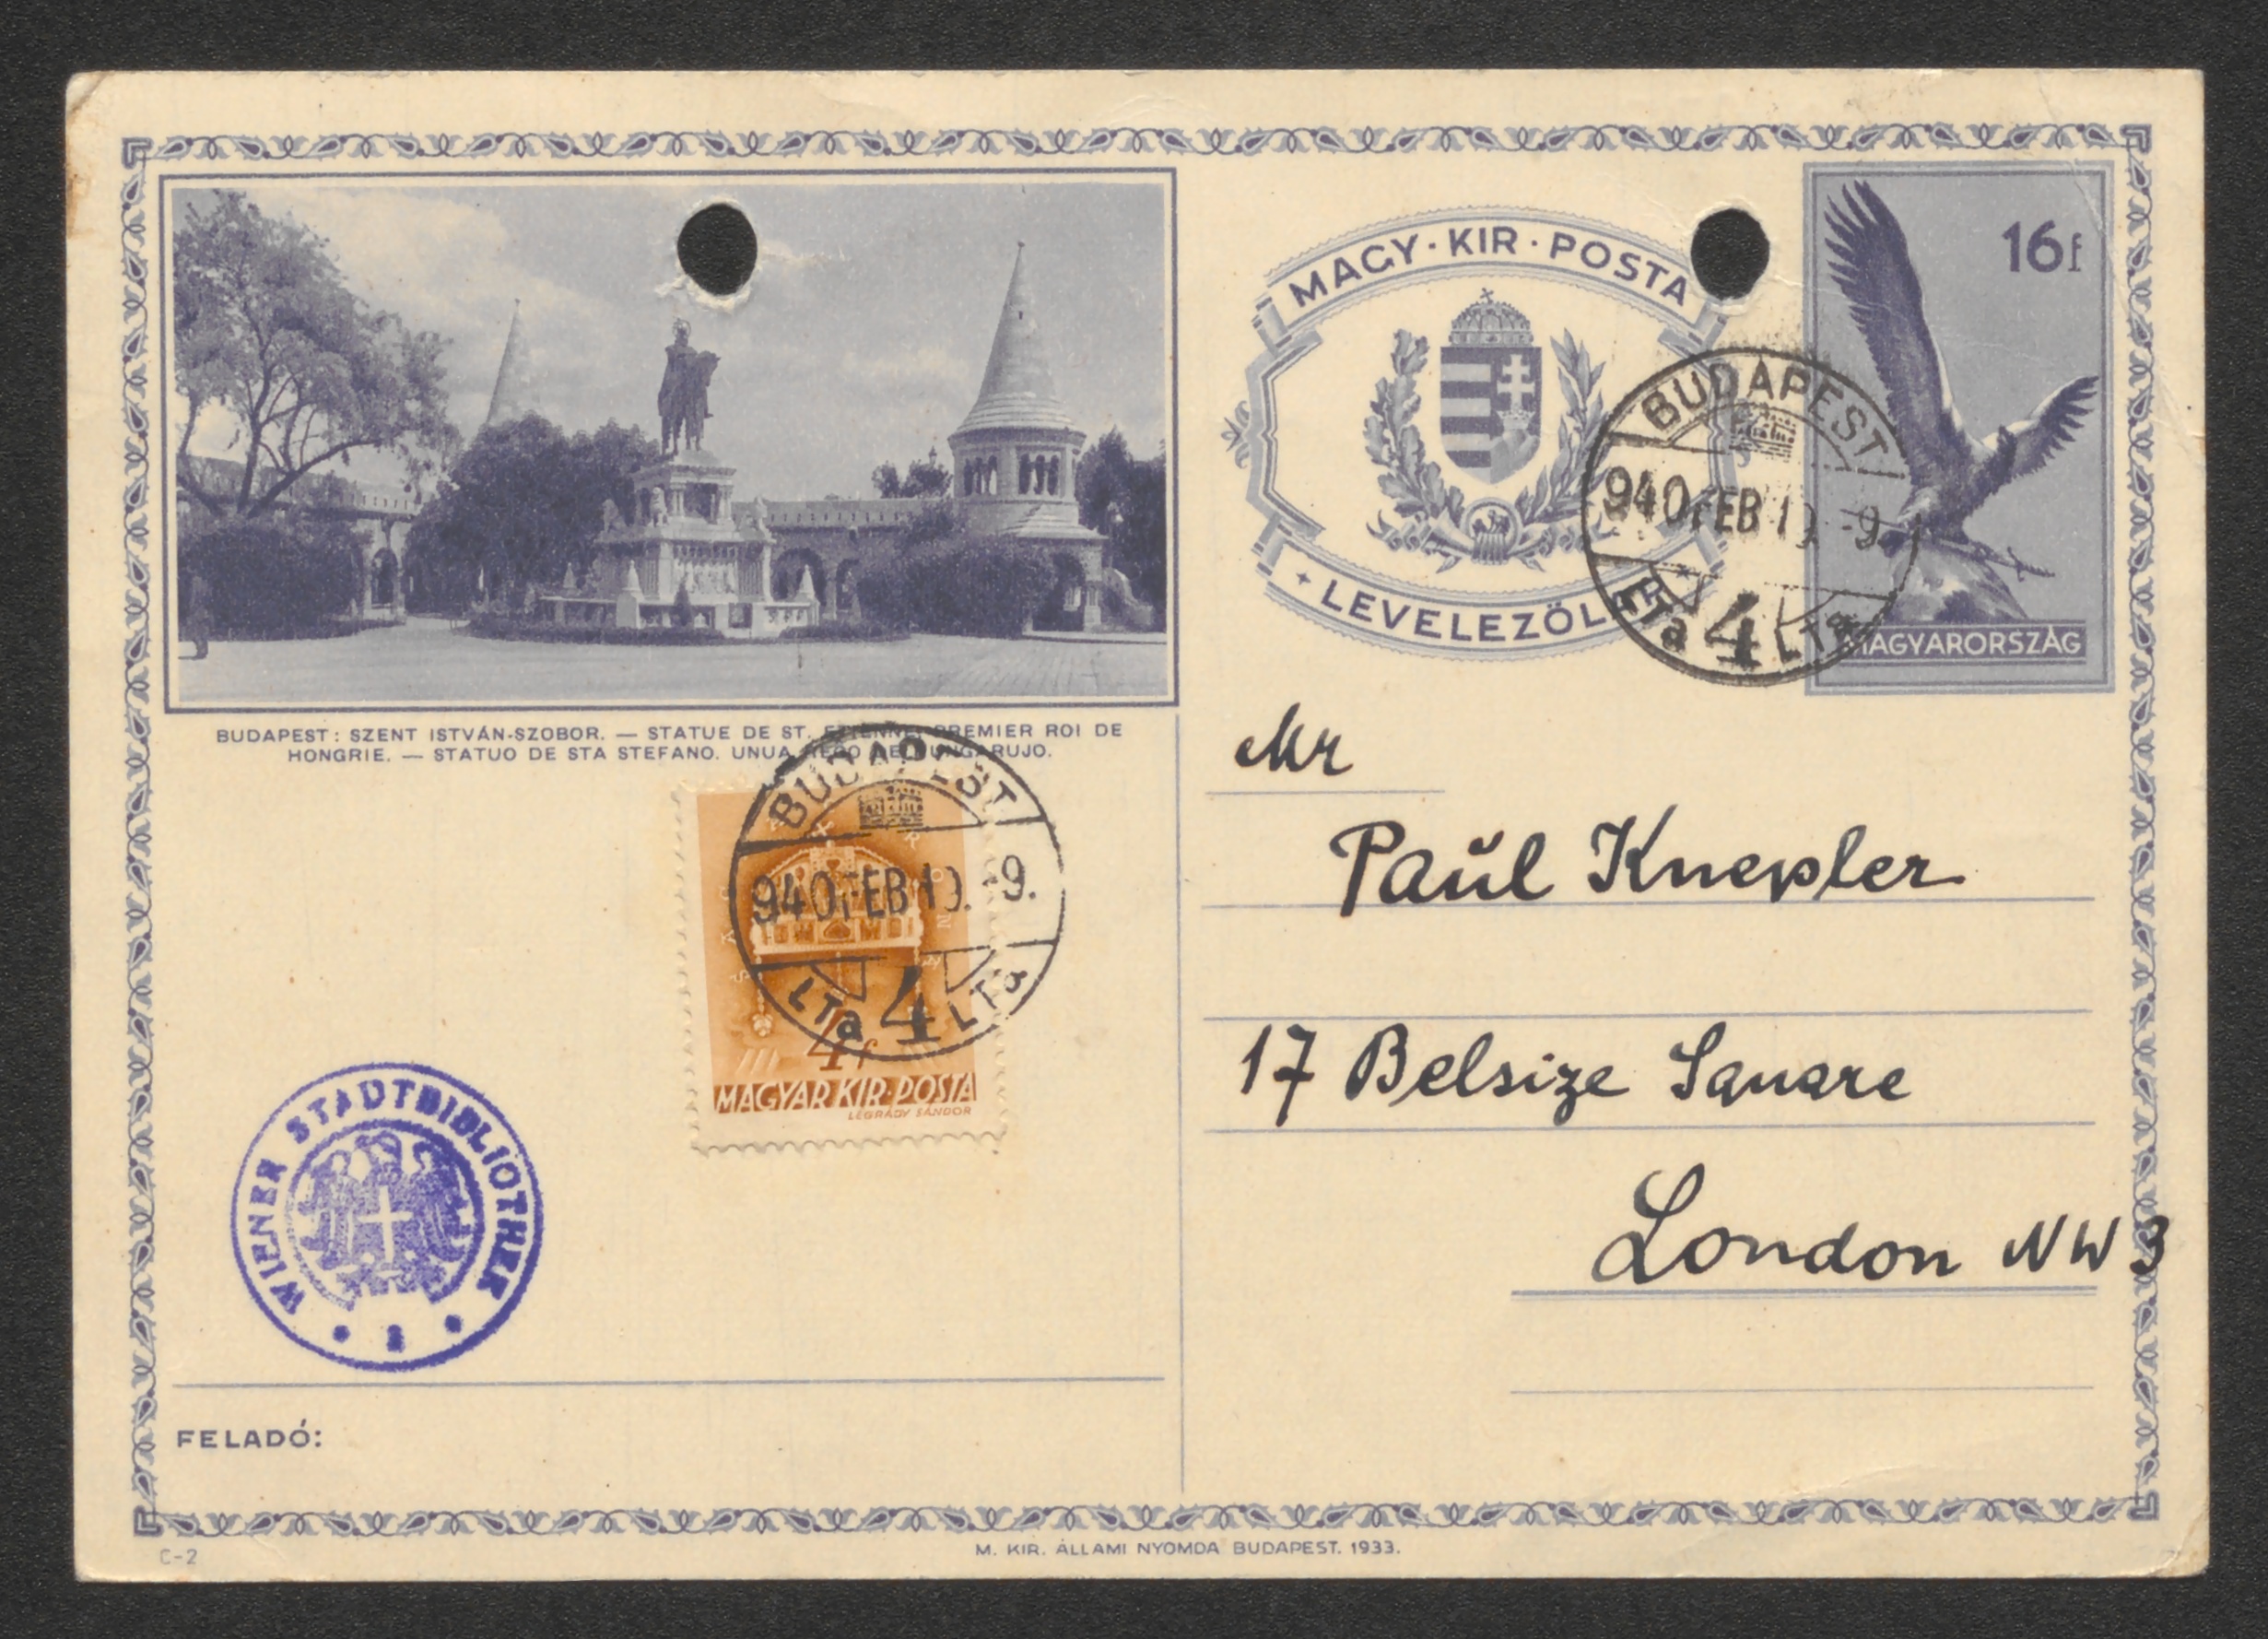 MAGY·KIR·POSTA
LEVELEZŐL
16f
MAGYARORSZÁG
BUDAPEST
940 FEB 1 -9.
LTa 4 LTa
BUDAPEST: SZENT ISTVÁN-SZOBOR. — STATUE DE ST. ETIENNE PREMIER ROI DE
HONGRIE. — STATUO DE STA STEFANO. UNUA REGO DE HUNGARUJO.
BUDAPEST
940 FEB 1 -9.
LTa 4 LTa
4f
MAGYAR KIR·POSTA
LÉGRÁDY SÁNDOR
WIENER STADTBIBLIOTHEK
FELADÓ:
Mr
Paŭl Knepler
17 Belsize Square
London NW 3
C-2
M. KIR. ÁLLAMI NYOMDA BUDAPEST. 1933.